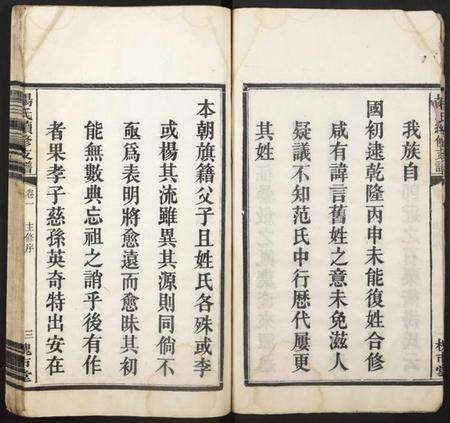 我族自
國初逮乾隆丙申未能復姓合修
咸有諱言舊姓之意未免滋人
疑議不知范氏中行歷代屢更
其姓
本朝旗籍父子且姓氏各殊或李
或楊其流雖異其源則同倘不
亟爲表明將愈遠而愈昧其初
能無數典忘祖之誚乎後有作
者果孝子慈孫英奇特出安在
楊氏續修支譜
卷
主修序
三槐市堂